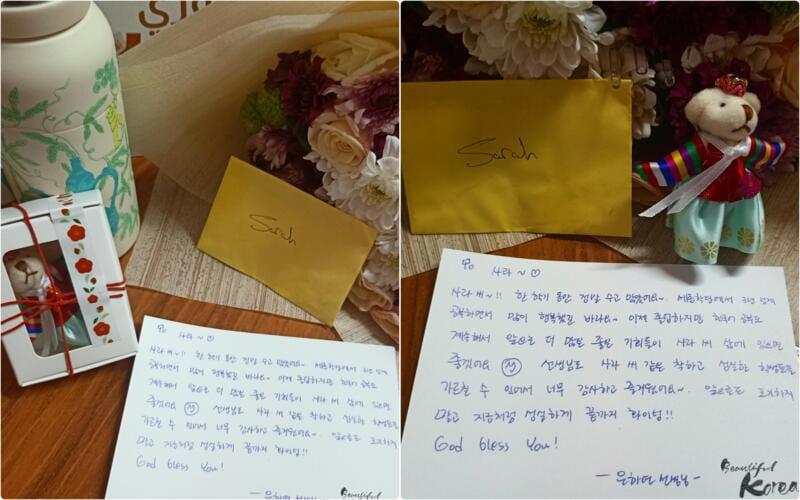 Sarah
To 사라 ~ ♡
사라 씨~!! 한 학기 동안 정말 수고 많았어요~. 세종학당에서 3년 넘게
공부하면서 많이 행복했길 바라요~ 이제 졸업하지만 한국어 공부도
계속해서 앞으로 더 많은 좋은 기회들이 사라 씨 삶에 있으면
좋겠어요 선생님도 사라 씨 같은 착하고 성실한 학생들을
가르칠 수 있어서 너무 감사하고 즐거웠어요~. 앞으로도 포기하지
말고 지금처럼 성실하게 끝까지 화이팅!!
God bless you!
선생님
Beautiful
Sarah
To 사라 ~ ♡
사라 씨~!! 한 학기 동안 정말 수고 많았어요~. 세종학당에서 3년 넘게
공부하면서 많이 행복했길 바라요~ 이제 졸업하지만 한국어 공부도
계속해서 앞으로 더 많은 좋은 기회들이 사라 씨 삶에 있으면
좋겠어요 선생님도 사라 씨 같은 착하고 성실한 학생들을
가르칠 수 있어서 너무 감사하고 즐거웠어요~. 앞으로도 포기하지
말고 지금처럼 성실하게 끝까지 화이팅!!
God bless you!
선생님 -
Beautiful
Korea